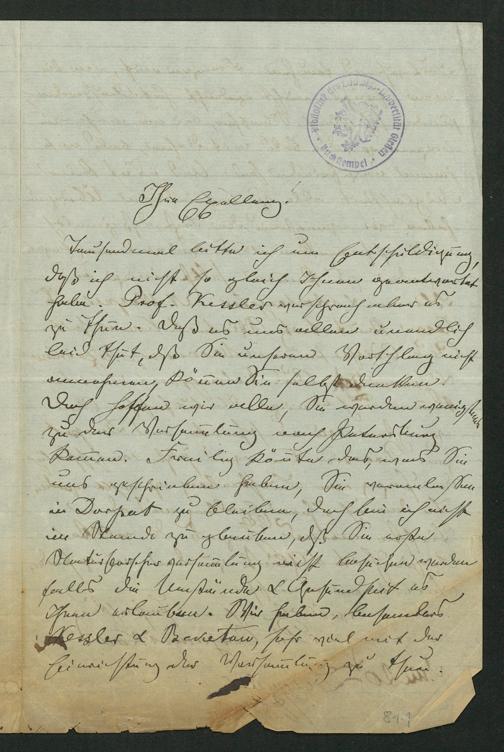 Ihre Excellenz!
Tausendmal bitte ich um Entschuldigung,
daß ich nicht so gleich Ihnen geantwortet
habe. Prof. Kessler versprach aber es
zu thun. Daß es uns allen unendlich
leid thut, dß Sie unseren Vorschlag nicht
annehmen, können Sie selbst denken.
Doch hoffen wir alle, Sie werden wenigstens
zu der Versammlung nach Petersburg
kommen. Freilig könnte das, was Sie
uns geschrieben haben, Sie
in Dorpat zu bleiben, doch bin ich nicht
im Stande zu glauben, dß Sie erste
Naturforscherversammlung nicht besuchen werden
falls die Umstände & Gesundheit es
Ihnen erlauben. Wir haben, besonders
Kessler & Beketow, sehr viel mit der
Einrichtung der Versammlung zu thun.
811